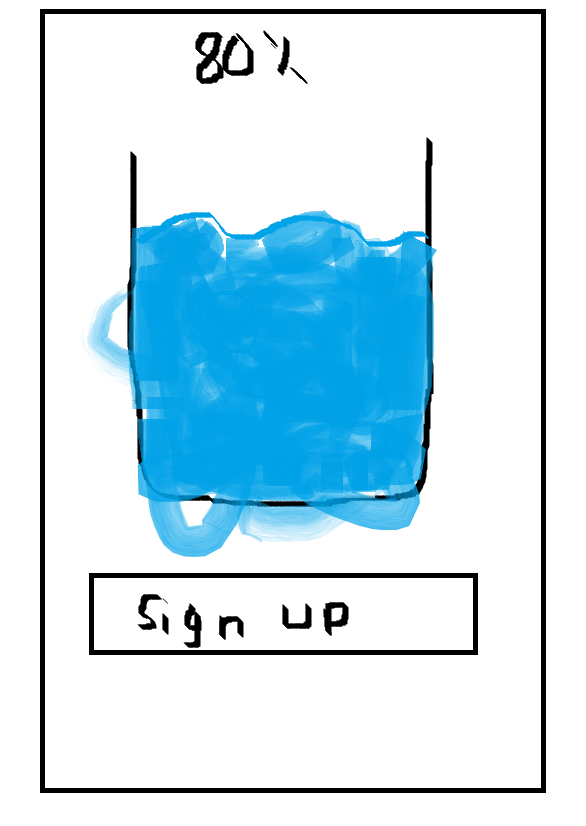 80%
Sign up